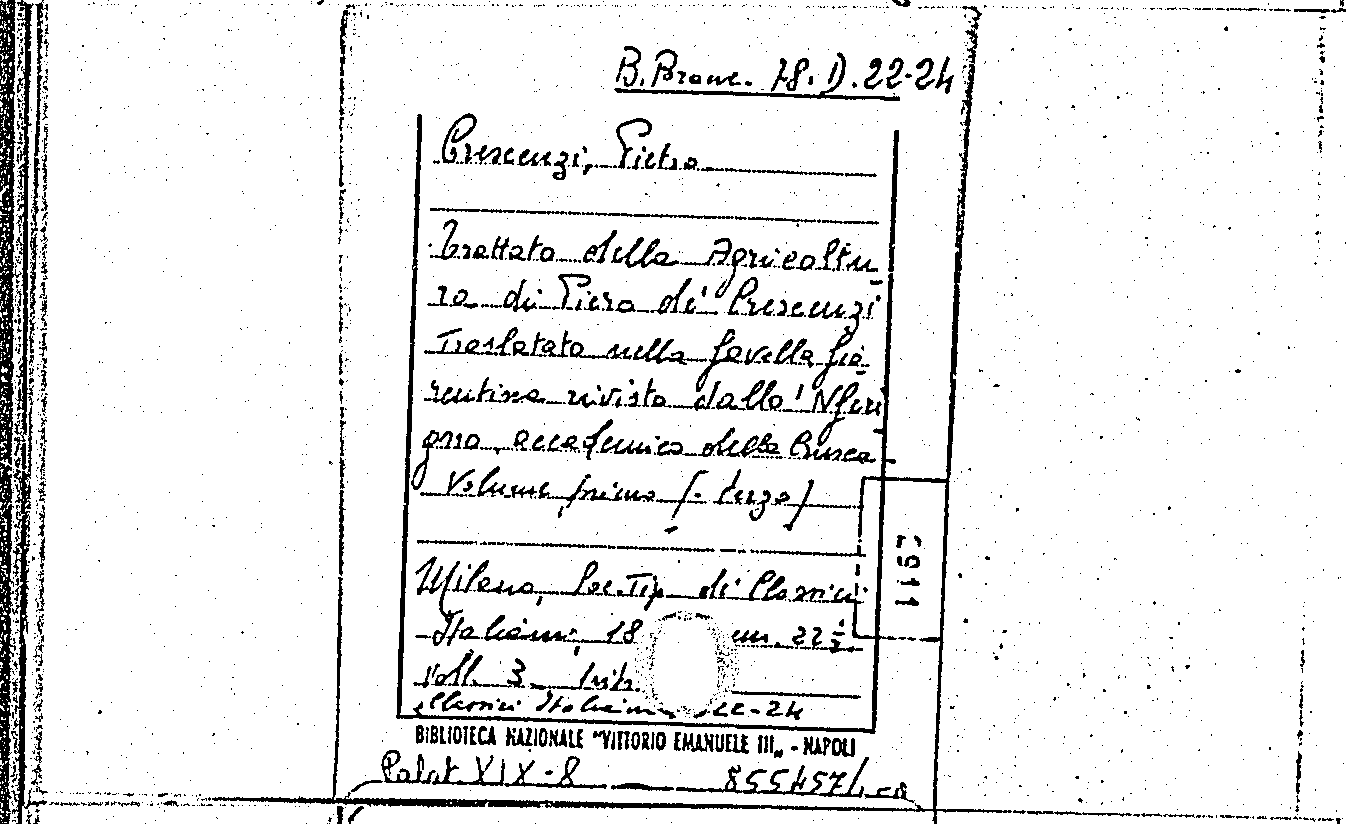 B. Branc. 78. D. 22-24
Crescenzi, Pietro
Trattato della Agricoltu-
ra di Piero de' Crescenzi
Traslatato nella favella fio-
rentina rivisto dallo 'Nferi-
gno, accademico della Crusca-
Volume primo (- terzo)
Milano, Soc. Tip. di Classici
Italiani, 18 cm. 22
voll. 3
Classici Italiani 22-24
1167
BIBLIOTECA NAZIONALE "VITTORIO EMANUELE III„ - NAPOLI
Palat. XIX-8 855457/